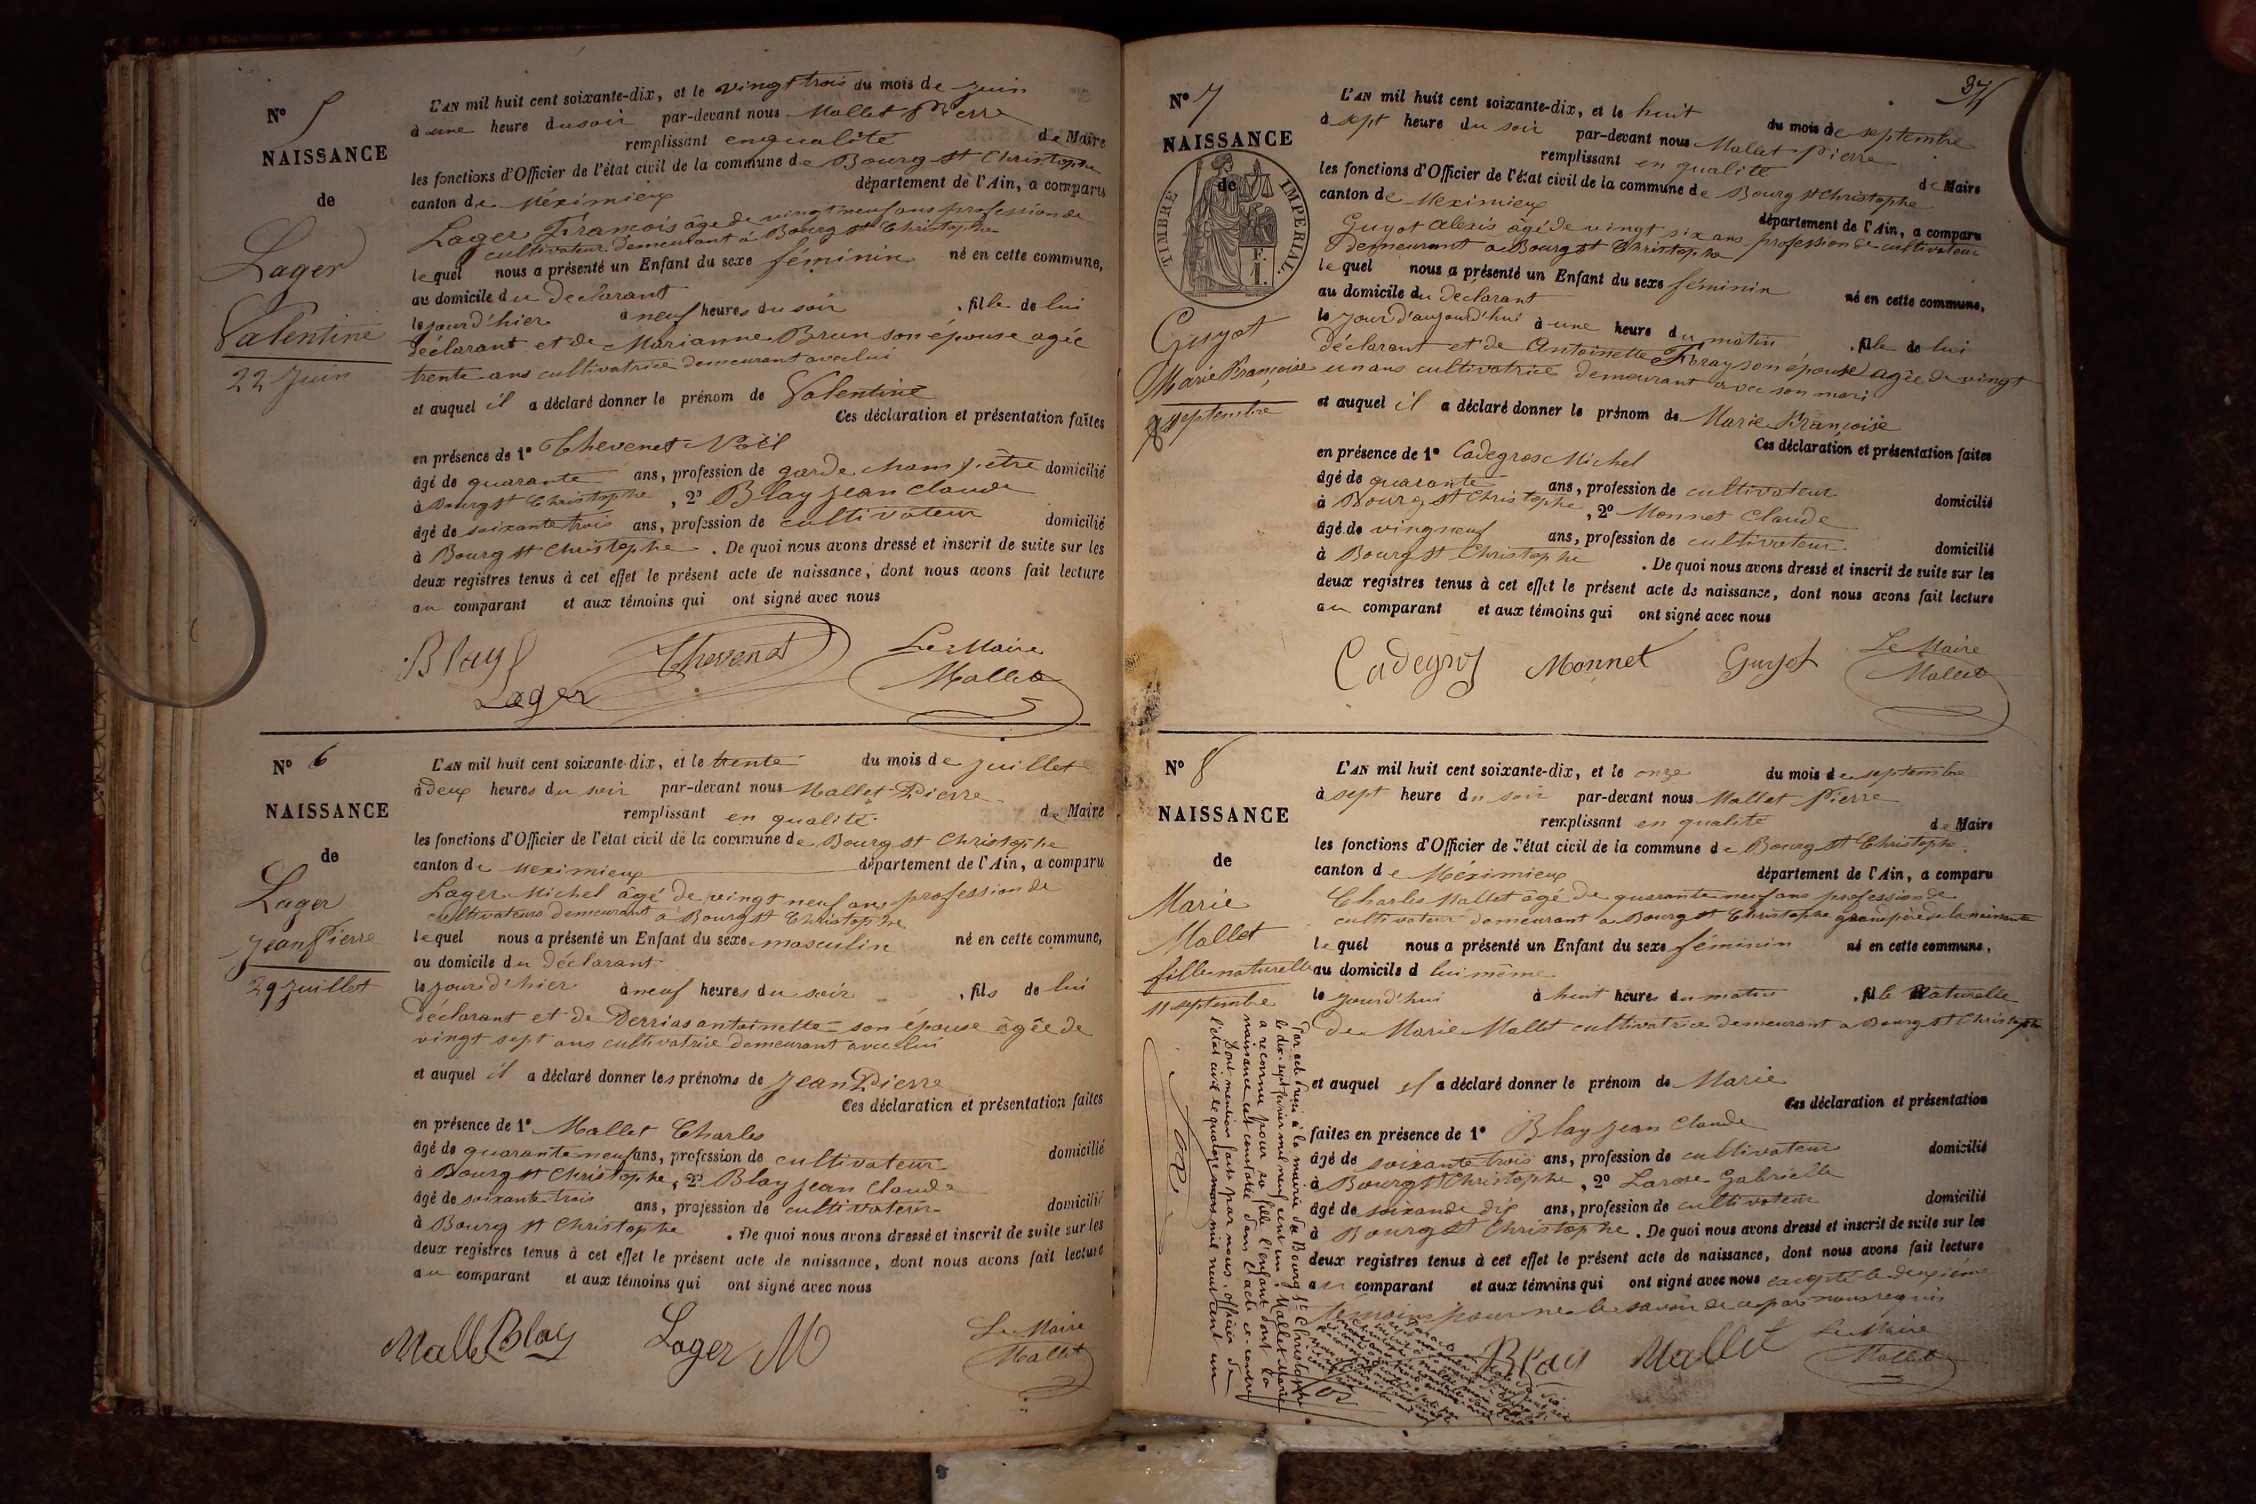 N° 5
NAISSANCE
de
Lager
Valentine
22 Juin
L'AN mil huit cent soixante-dix, et le vingt trois du mois de Juin
à une heure du soir par-devant nous Mallet Pierre
remplissant en qualité de Maire
les fonctions d'Officier de l'état civil de la commune de Bourg St Christophe
canton de Méximieux département de l'Ain, a comparu
Lager François âge de vingt neuf ans profession de
cultivateur demeurant à Bourg St Christophe
lequel nous a présenté un Enfant du sexe féminin né en cette commune,
au domicile du déclarant
le jourd'hier à neuf heures du soir , fille de lui
déclarant et de Marianne Brun son épouse agée
trente ans cultivatrice demeurant avec lui
et auquel il a déclaré donner le prénom de Valentine
Ces déclaration et présentation faites
en présence de 1° Thevenet Noël
âgé de quarante ans, profession de garde champêtre domicilié
à Bourg St Christophe , 2° Blay Jean Claude
âgé de soixante trois ans, profession de cultivateur domicilié
à Bourg St Christophe . De quoi nous avons dressé et inscrit de suite sur les
deux registres tenus à cet effet le présent acte de naissance, dont nous avons fait lecture
au comparant et aux témoins qui ont signé avec nous
Blay Thevenet Le Maire
Lager Mallet
N° 6
NAISSANCE
de
Lager
Jean Pierre
29 Juillet
L'AN mil huit cent soixante-dix, et le trente du mois de Juillet
à deux heures du soir par-devant nous Mallet Pierre
remplissant en qualité de Maire
les fonctions d'Officier de l'état civil de la commune de Bourg St Christophe
canton de Meximieux département de l'Ain, a comparu
Lager Michel âgé de vingt neuf ans profession de
cultivateur demeurant à Bourg St Christophe
lequel nous a présenté un Enfant du sexe masculin né en cette commune,
au domicile du déclarant
le jourd'hier à neuf heures du soir , fils de lui
déclarant et de Derrias antoinette son épouse âgée de
vingt sept ans cultivatrice demeurant avec lui
et auquel il a déclaré donner les prénoms de Jean Pierre
Ces déclaration et présentation faites
en présence de 1° Mallet Charles
âgé de quarante neuf ans, profession de cultivateur domicilié
à Bourg St Christophe , 2° Blay Jean Claude
âgé de soixante trois ans, profession de cultivateur domicilié
à Bourg St Christophe . De quoi nous avons dressé et inscrit de suite sur les
deux registres tenus à cet effet le présent acte de naissance, dont nous avons fait lecture
au comparant et aux témoins qui ont signé avec nous
Mallet Blay Lager M Le Maire
Mallet
37
N° 7
NAISSANCE
de
TIMBRE IMPERIAL
Guyot
Marie Françoise
8 septembre
L'AN mil huit cent soixante-dix, et le huit du mois de septembre
à sept heure du soir par-devant nous Mallet Pierre
remplissant en qualité de Maire
les fonctions d'Officier de l'état civil de la commune de Bourg St Christophe
canton de Meximieux département de l'Ain, a comparu
Guyot Alexis âgé de vingt six ans profession de cultivateur
demeurant a Bourg St Christophe
lequel nous a présenté un Enfant du sexe féminin né en cette commune,
au domicile du déclarant
le jour d'aujourd'hui à une heure du matin , fille de lui
déclarant et de Antoinette son épouse agée de vingt
un ans cultivatrice demeurant avec son mari
et auquel il a déclaré donner le prénom de Marie Françoise
Ces déclaration et présentation faites
en présence de 1° Cadegros Michel
âgé de quarante ans, profession de cultivateur domicilié
à Bourg St Christophe , 2° Monnet Claude
âgé de vingneuf ans, profession de cultivateur domicilié
à Bourg St Christophe . De quoi nous avons dressé et inscrit de suite sur les
deux registres tenus à cet effet le présent acte de naissance, dont nous avons fait lecture
au comparant et aux témoins qui ont signé avec nous
Cadegros Monnet Guyot Le Maire
Mallet
N° 8
NAISSANCE
de
Marie
Mallet
fille naturelle
11 septembre
L'AN mil huit cent soixante-dix, et le onze du mois de septembre
à sept heure du soir par-devant nous Mallet Pierre
remplissant en qualité de Maire
les fonctions d'Officier de l'état civil de la commune de Bourg St Christophe
canton de Méximieux département de l'Ain, a comparu
Charles Mallet âgé de quarante neuf ans profession de
cultivateur demeurant a Bourg St Christophe grand père de la naissante
lequel nous a présenté un Enfant du sexe féminin né en cette commune,
au domicile d lui même
le jourd'hui à huit heures du matin , fille naturelle
De Marie Mallet cultivatrice demeurant a Bourg St Christophe
et auquel il a déclaré donner le prénom de Marie
Ces déclaration et présentation
faites en présence de 1° Blay Jean Claude
âgé de soixante trois ans, profession de cultivateur domicilié
à Bourg St Christophe , 2° Larose Gabrielle
âgé de soixande dix ans, profession de cultivateur domicilié
à Bourg St Christophe . De quoi nous avons dressé et inscrit de suite sur les
deux registres tenus à cet effet le présent acte de naissance, dont nous avons fait lecture
au comparant et aux témoins qui ont signé avec nous excepté le deuxième
témoins pour ne le savoir de ce par nous requis
Blay Mallet Le Maire
Mallet
Par acte reçu à la mairie de Bourg St Christophe
le dix-sept février mil neuf cent un, Mallet Marie
a reconnu pour sa fille l'enfant dont la
naissance est constatée dans l'acte ci-contre
Dont mention faite par nous officier de
l'état civil le quatorze mars mil neuf cent un